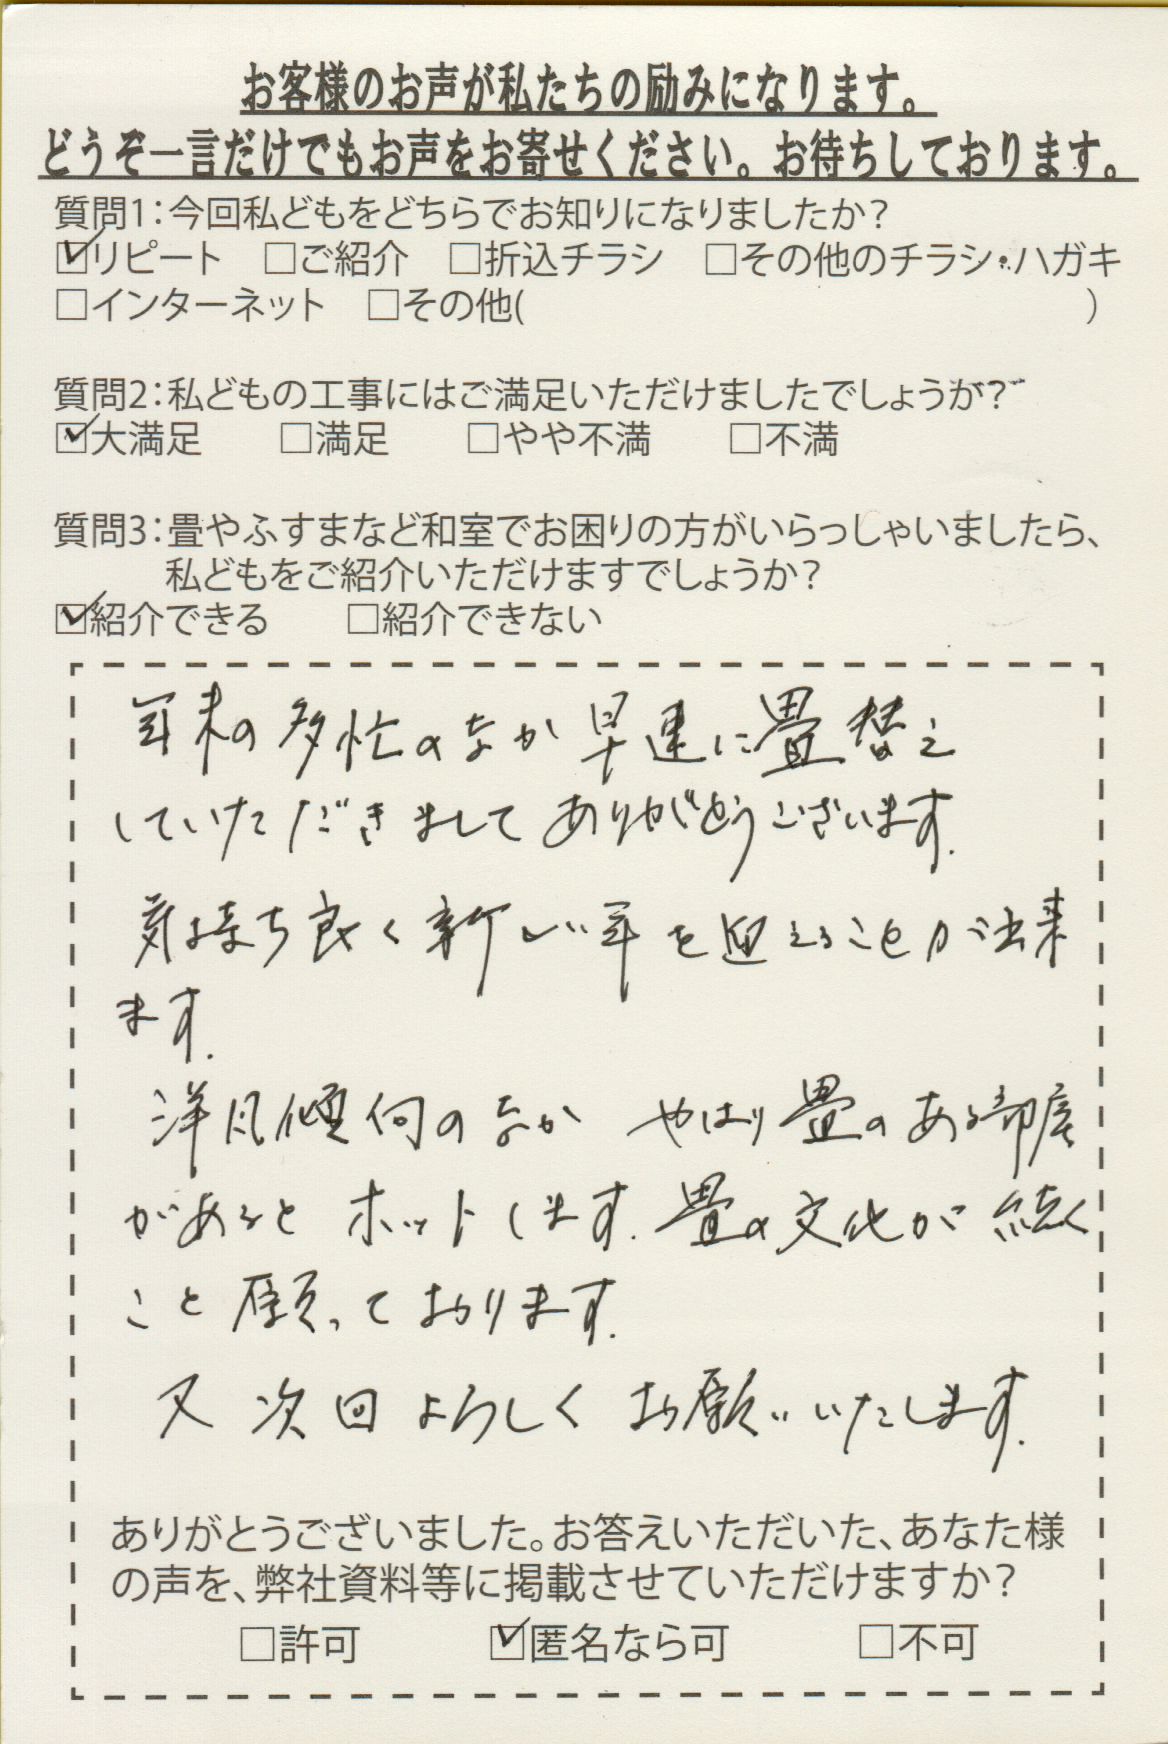 お客様のお声が私たちの励みになります。
どうぞ一言だけでもお声をお寄せください。お待ちしております。
質問1：今回私どもをどちらでお知りになりましたか？
☑リピート　□ご紹介　□折込チラシ　□その他のチラシ・ハガキ
□インターネット　□その他(　　　　　　　　　　　　)
質問2：私どもの工事にはご満足いただけましたでしょうか？
☑大満足　□満足　□やや不満　□不満
質問3：畳やふすまなど和室でお困りの方がいらっしゃいましたら、
私どもをご紹介いただけますでしょうか？
☑紹介できる　□紹介できない
年末の多忙のなか早速に畳替え
していただきましてありがとうございます.
気持ち良く新しい年を迎えることが出来
ます.
洋風傾向のなか やはり畳のある部屋
があると ホットします. 畳の文化が続く
こと願っております.
又 次回よろしく お願いいたします.
ありがとうございました。お答えいただいた、あなた様
の声を、弊社資料等に掲載させていただけますか？
□許可　☑匿名なら可　□不可